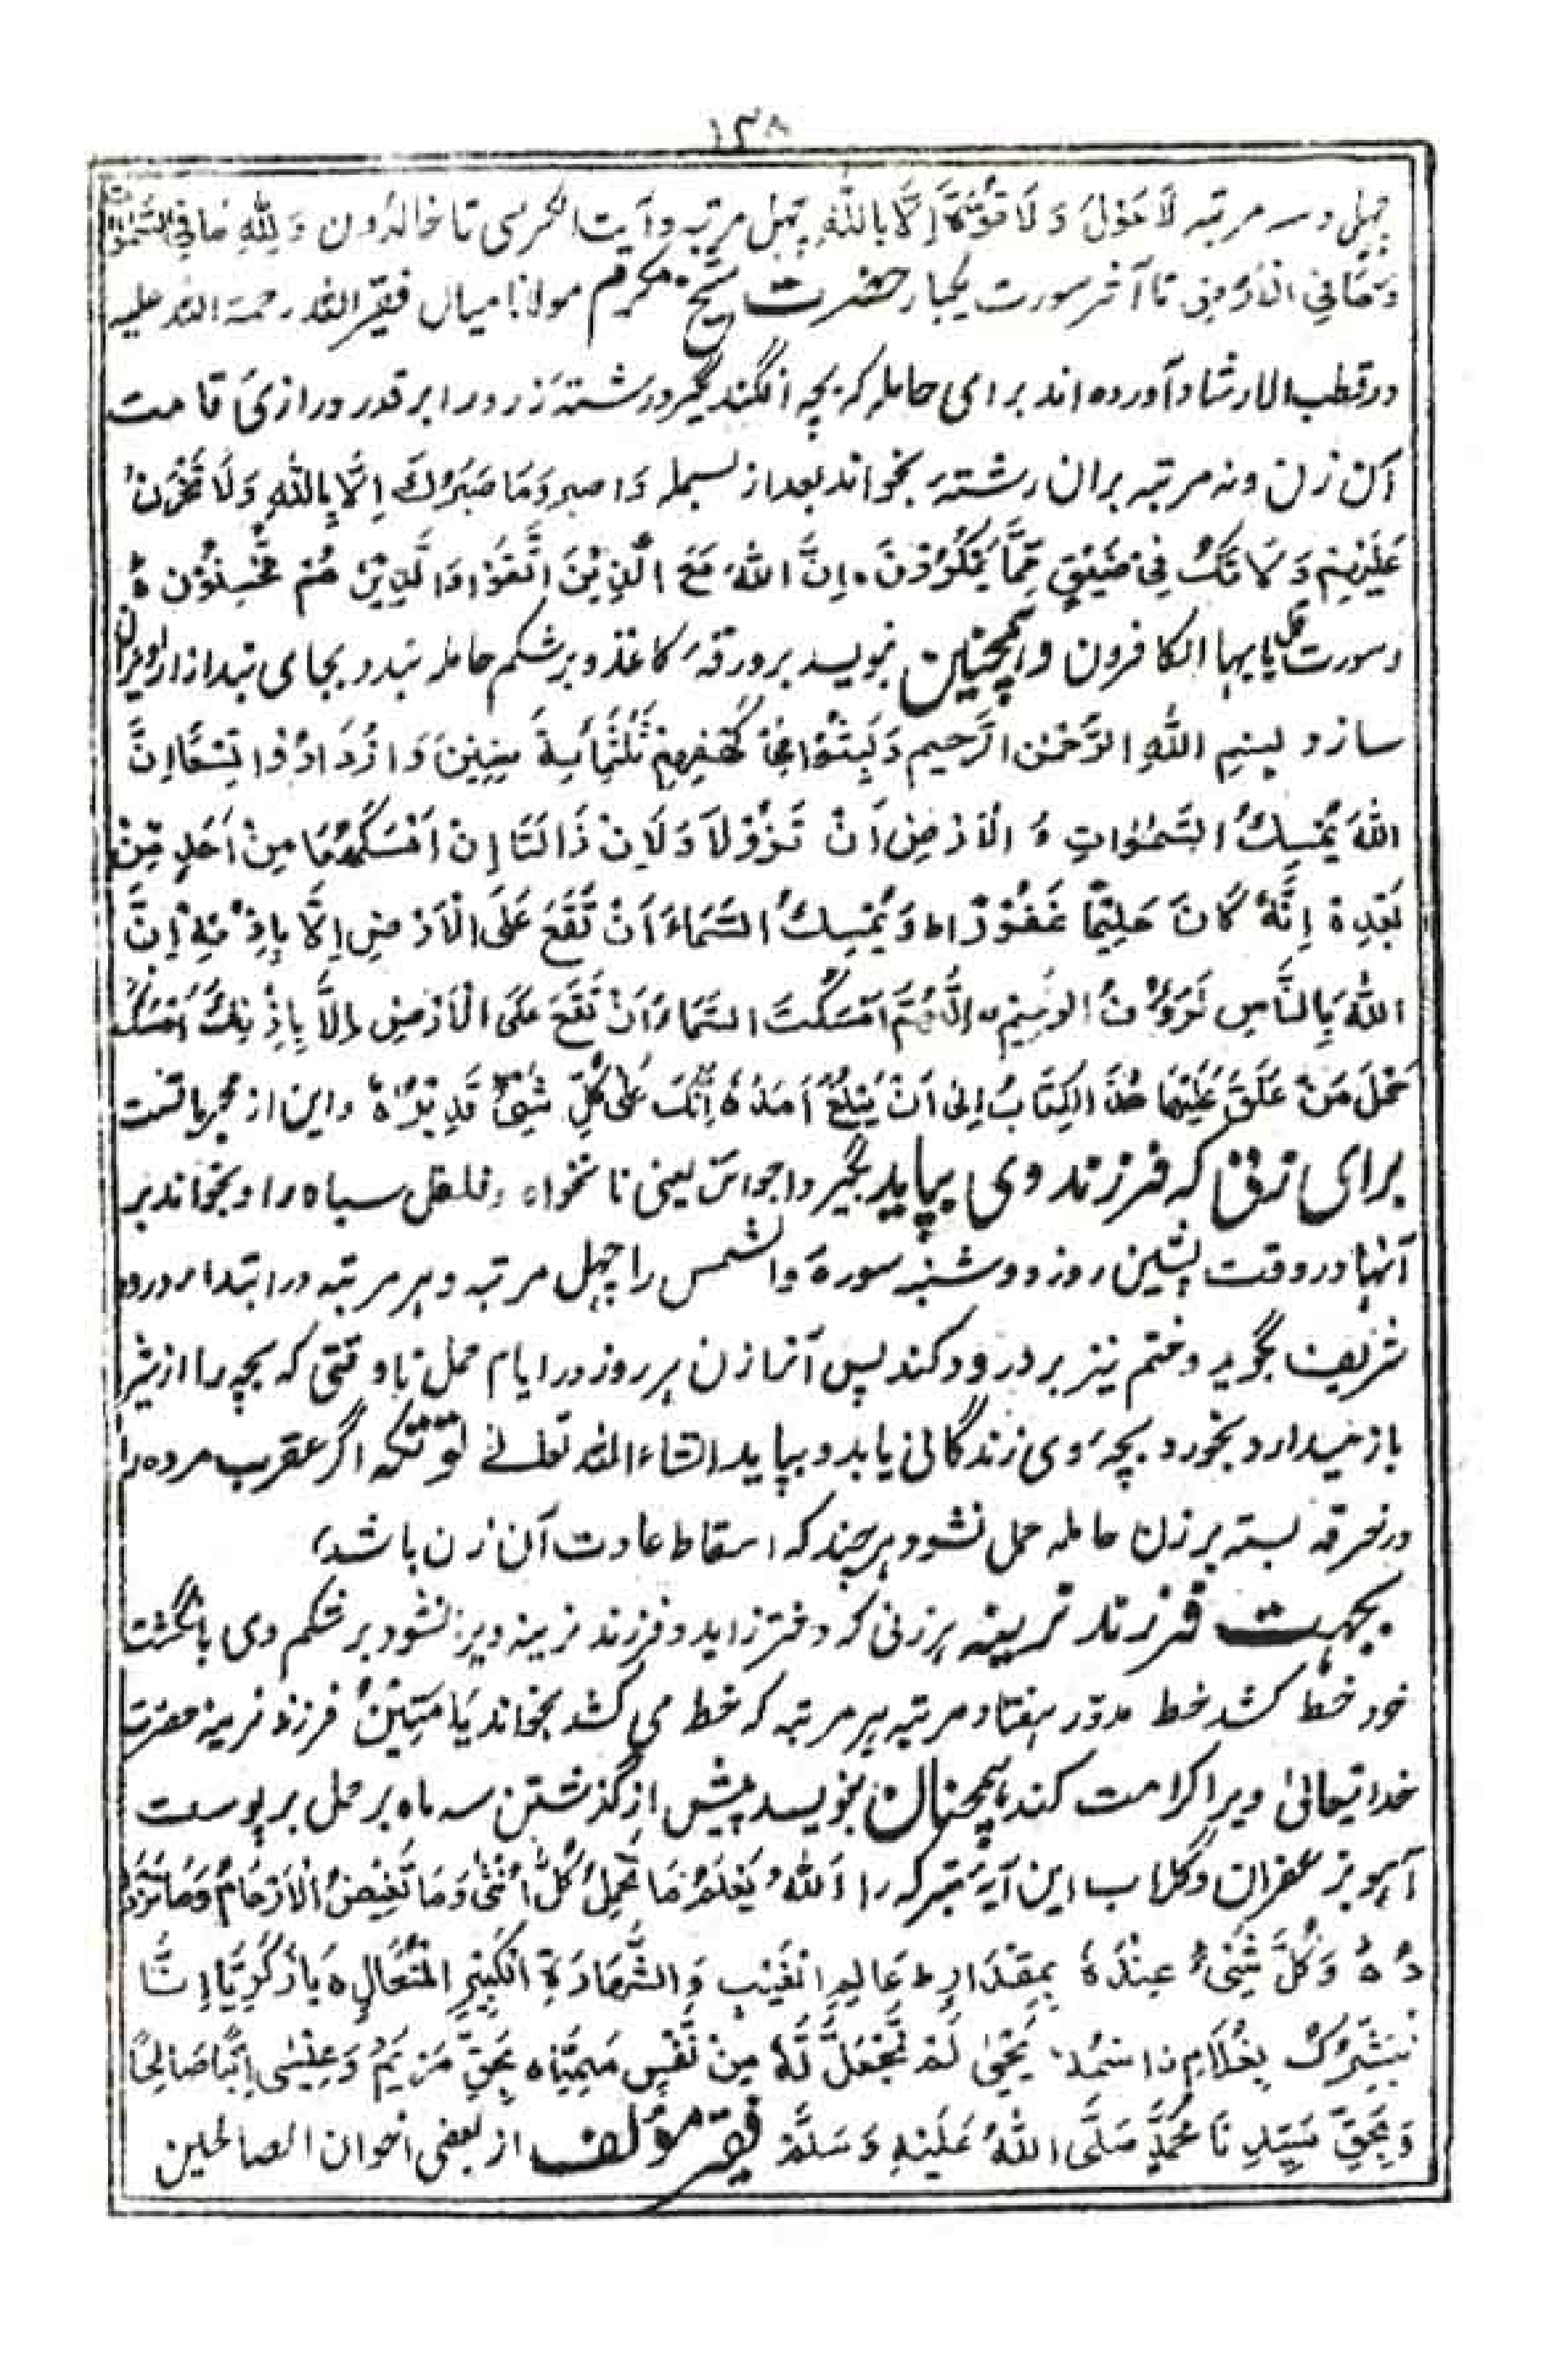 ۱۳۸
چهل و سه مرتبه لَا حَوْلَ وَلَا قُوَّةَ إِلَّا بِاللّٰهِ چهل مرتبه و آیت الکرسی تا خالدون وَلِلّٰهِ مَا فِي السَّمٰوَات
وَمَا فِي الْاَرْضِ تا آخر سورت یکبار حضرت شیخ مکرم مولانا میاں فقیر اللہ رحمۃ اللہ علیہ
در قطب الارشاد آورده اند برای حامله که بچه افگند بگیرد رشتہ زرد را بر قدر درازیٔ قامت
آن زن و نه مرتبه بران رشتہ بخواند بعد از بسمله وَاصبر وَمَا صَبْرُكَ اِلَّا بِاللّٰهِ وَلَا تَحْزَنْ
عَلَيْهِمْ وَلَا تَكُ فِيْ ضَيْقٍ مِّمَّا يَمْكُرُوْنَ ۰ اِنَّ اللّٰهَ مَعَ الَّذِيْنَ اتَّقَوْا وَالَّذِيْنَ هُمْ مُّحْسِنُوْن ه
وسورت قل یایہا الکافرون وہمچنین بنویسد بر ورقہ کاغذ و بر شکم حاملہ بندد و بجای بند از
سازد بِسْمِ اللّٰهِ الرَّحْمٰنِ الرَّحِيم وَلَبِثُوْا فِيْ كَهْفِهِمْ ثَلٰثَمِائَةٍ سِنِيْنَ وَازْدَادُوْا تِسْعًا اِنَّ
اللّٰهَ يُمْسِكُ السَّمٰوٰاتِ وَ الْاَرْضَ اَنْ تَزُوْلَا وَلَاِنْ زَالَتَا اِنْ اَمْسَكَهُمَا مِنْ اَحَدٍ مِّنْ
بَعْدِهٖ اِنَّهُ كَانَ حَلِيْمًا غَفُوْرًا ط وَيُمْسِكُ السَّمَاءَ اَنْ تَقَعَ عَلَى الْاَرْضِ اِلَّا بِاِذْنِهٖ اِنَّ
اللّٰهَ بِالنَّاسِ لَرَؤُفٌ الرحيم اَللّٰهُمَّ اَمْسَكْتَ السَّمَاءَ اَنْ تَقَعَ عَلَى الْاَرْضِ اِلَّا بِاِذْنِكَ اَمْسِكْ
حَمْلَ مَنْ عَلَقَ عَلَيْهَا هٰذَا الْكِتَابُ اِلٰى اَنْ يَبْلُغَ اَمَدَهٗ اِنَّكَ عَلٰى كُلِّ شَيْءٍ قَدِيْرٌ ه واین از مجرباتست
برای زنی که فرزند وی بپاید بگیرد اجواین یعنی نانخواه و فلفل سیاه را و بخواند بر
آنہا در وقت پیشین روز دوشنبہ سورۃ والشمس را چہل مرتبہ و ہر مرتبہ در ابتدا درود
شریف بگوید و ختم نیز بر درود کند پس آنرا زن ہر روز در ایام حمل تا وقتی کہ بچہ را از شیر
باز میدارد بخورد بچہ وی زندگانی یابد و بپاید انشاء اللہ تعالی اگر عقرب مردہ را
در خرقہ بستہ بر زن حاملہ حمل نشود ہر چند کہ اسقاط عادت آن زن باشد
بجہت فرزند نرینہ ہر زنی کہ دختر زاید و فرزند نرینہ ویرا نشود بر شکم وی بانگشت
خود خط کشد خط مدوّر ہفتاد مرتبہ ہر مرتبہ کہ خط می کشد بخواند يَا مَتِيْنُ فرزند نرینہ حضرت
خدا تیعالیٰ ویرا کرامت کند ہمچنان بنویسد پیش از گذشتن سہ ماہ بر حمل بر پوست
آہو بزعفران و گلاب این آیۂ متبرکہ را اَللّٰهُ يَعْلَمُ مَا تَحْمِلُ كُلُّ اُنْثٰى وَمَا تَغِيْضُ الْاَرْحَامُ وَمَا تَزْدَا
دُ ه وَكُلُّ شَيْءٍ عِنْدَهٗ بِمِقْدَارٍ ط عَالِمِ الْغَيْبِ وَالشَّهَادَةِ الْكَبِيْرِ الْمُتَعَالِ ه يَا زَكَرِيَّا اِنَّا
نُبَشِّرُكَ بِغُلَامِ ن اسْمُهٗ يَحْيٰى لَمْ نَجْعَلْ لَّهٗ مِنْ قَبْلُ سَمِيًّا ه بِحَقِّ مَرْيَمَ وَعِيْسٰى اِبْنًا صَالِحًا
وَبِحَقِّ سَيِّدِنَا مُحَمَّدٍ صَلَّى اللّٰهُ عَلَيْهِ وَسَلَّمْ فقیر مؤلف از بعضی اخوان الصالحین